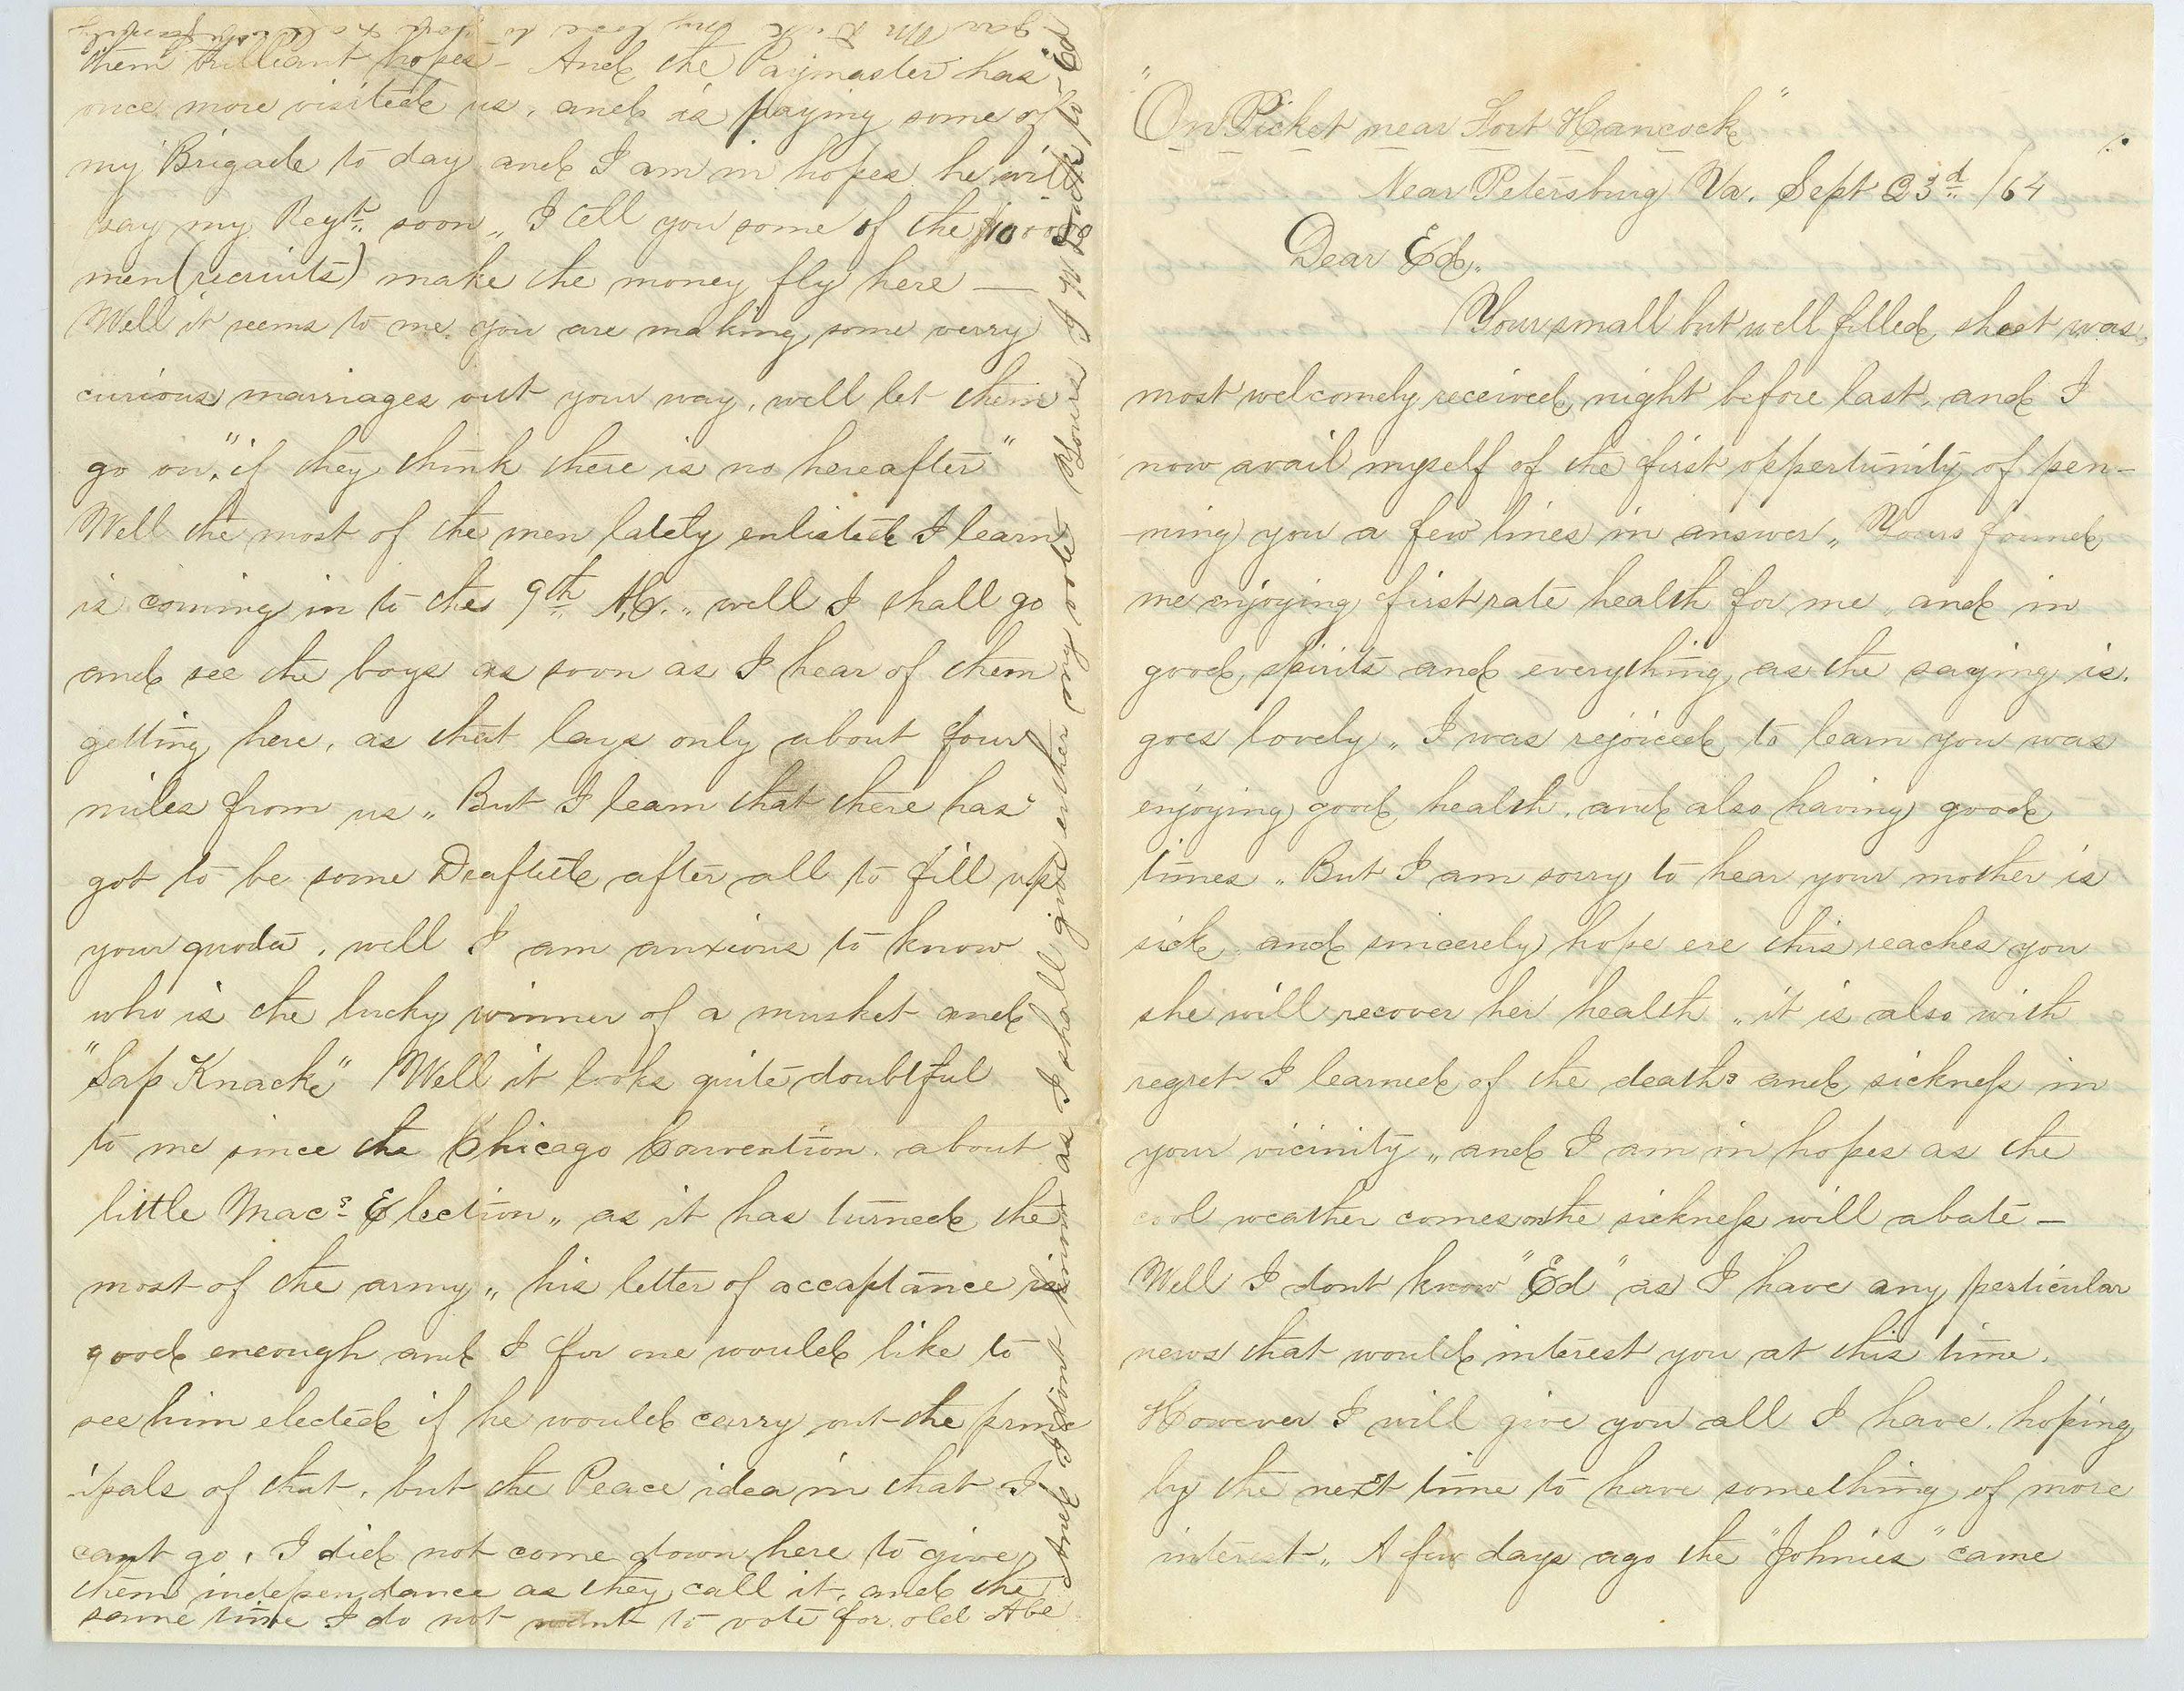 "On Picket near Fort Hancock"
Near Petersburg Va. Sept 23d /64
Dear Ed.
Your small but well filled sheet was
most welcomely received night before last, and I
now avail myself of the first oppertunity of pen-
-ning you a few lines in answer„ Yours found
me enjoying first rate health for me, and in
good spirits and everything as the saying is.
goes lovely„ I was rejoiced to learn you was
enjoying good health, and also having good
times„ But I am sorry to hear your mother is
sick and sincerely hope ere this reaches you
she will recover her health„ it is also with
regret I learned of the deaths and sickness in
your vicinity„ and I am in hopes as the
cool weather comes on the sickness will abate—
Well I dont know "Ed" as I have any perticular
news that would interest you at this time.
However I will give you all I have, hoping
by the next time to have something of more
interest„ A few days ago the "Johnies" came
them brilliant hopes— And the Paymaster has
once more visited us, and is paying some of
my Brigade to day and I am in hopes he will
pay my Regt. soon„ I tell you some of the
men (recruits) make the money fly here—
Well it seems to me you are making some verry
curious marriages out your way, well let them
go on, "if they think there is no hereafter"
Well the most of the men lately enlisted I learn
is coming in to the 9th A.C.„ well I shall go
and see the boys as soon as I hear of them
getting here, as that lays only about four
miles from us„ But I learn that there has
got to be some Drafted after all to fill up
your quota, well I am anxious to know
who is the lucky winner of a musket and
"Sap Knack" Well it looks quite doubtful
to me since the Chicago Convention, about
little Mac's Election„ as it has turned the
most of the army„ his letter of acceptance is
good enough and I for one would like to
see him elected if he would carry out the princ
-ipals of that, but the Peace idea in that I
cant go, I did not come down here to give
them independance as they call it, and the
same time I do not want to vote for old Abe
And I dont know as I shall give either my vote Yours
give my love to